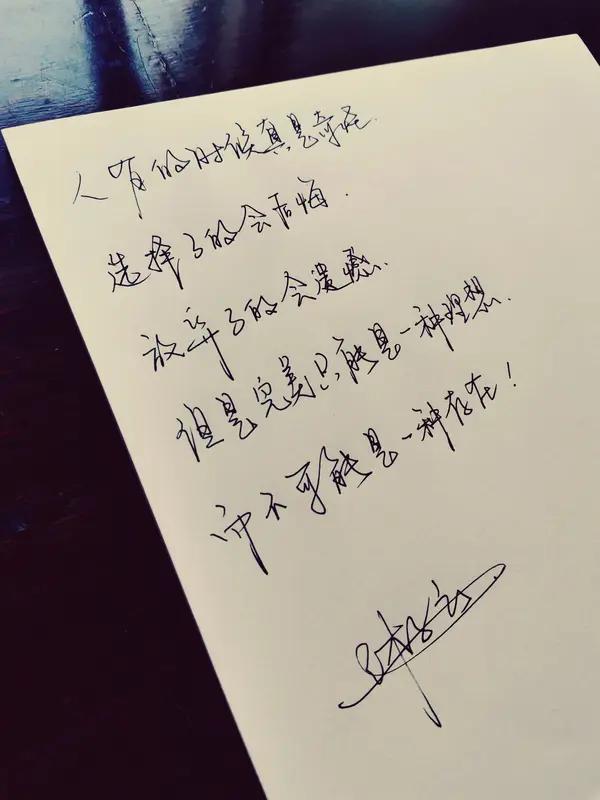 人有的时候真是奇怪.
选择了的会后悔.
放弃了的会遗憾.
但是完美只能是一种理想.
而不可能是一种存在!